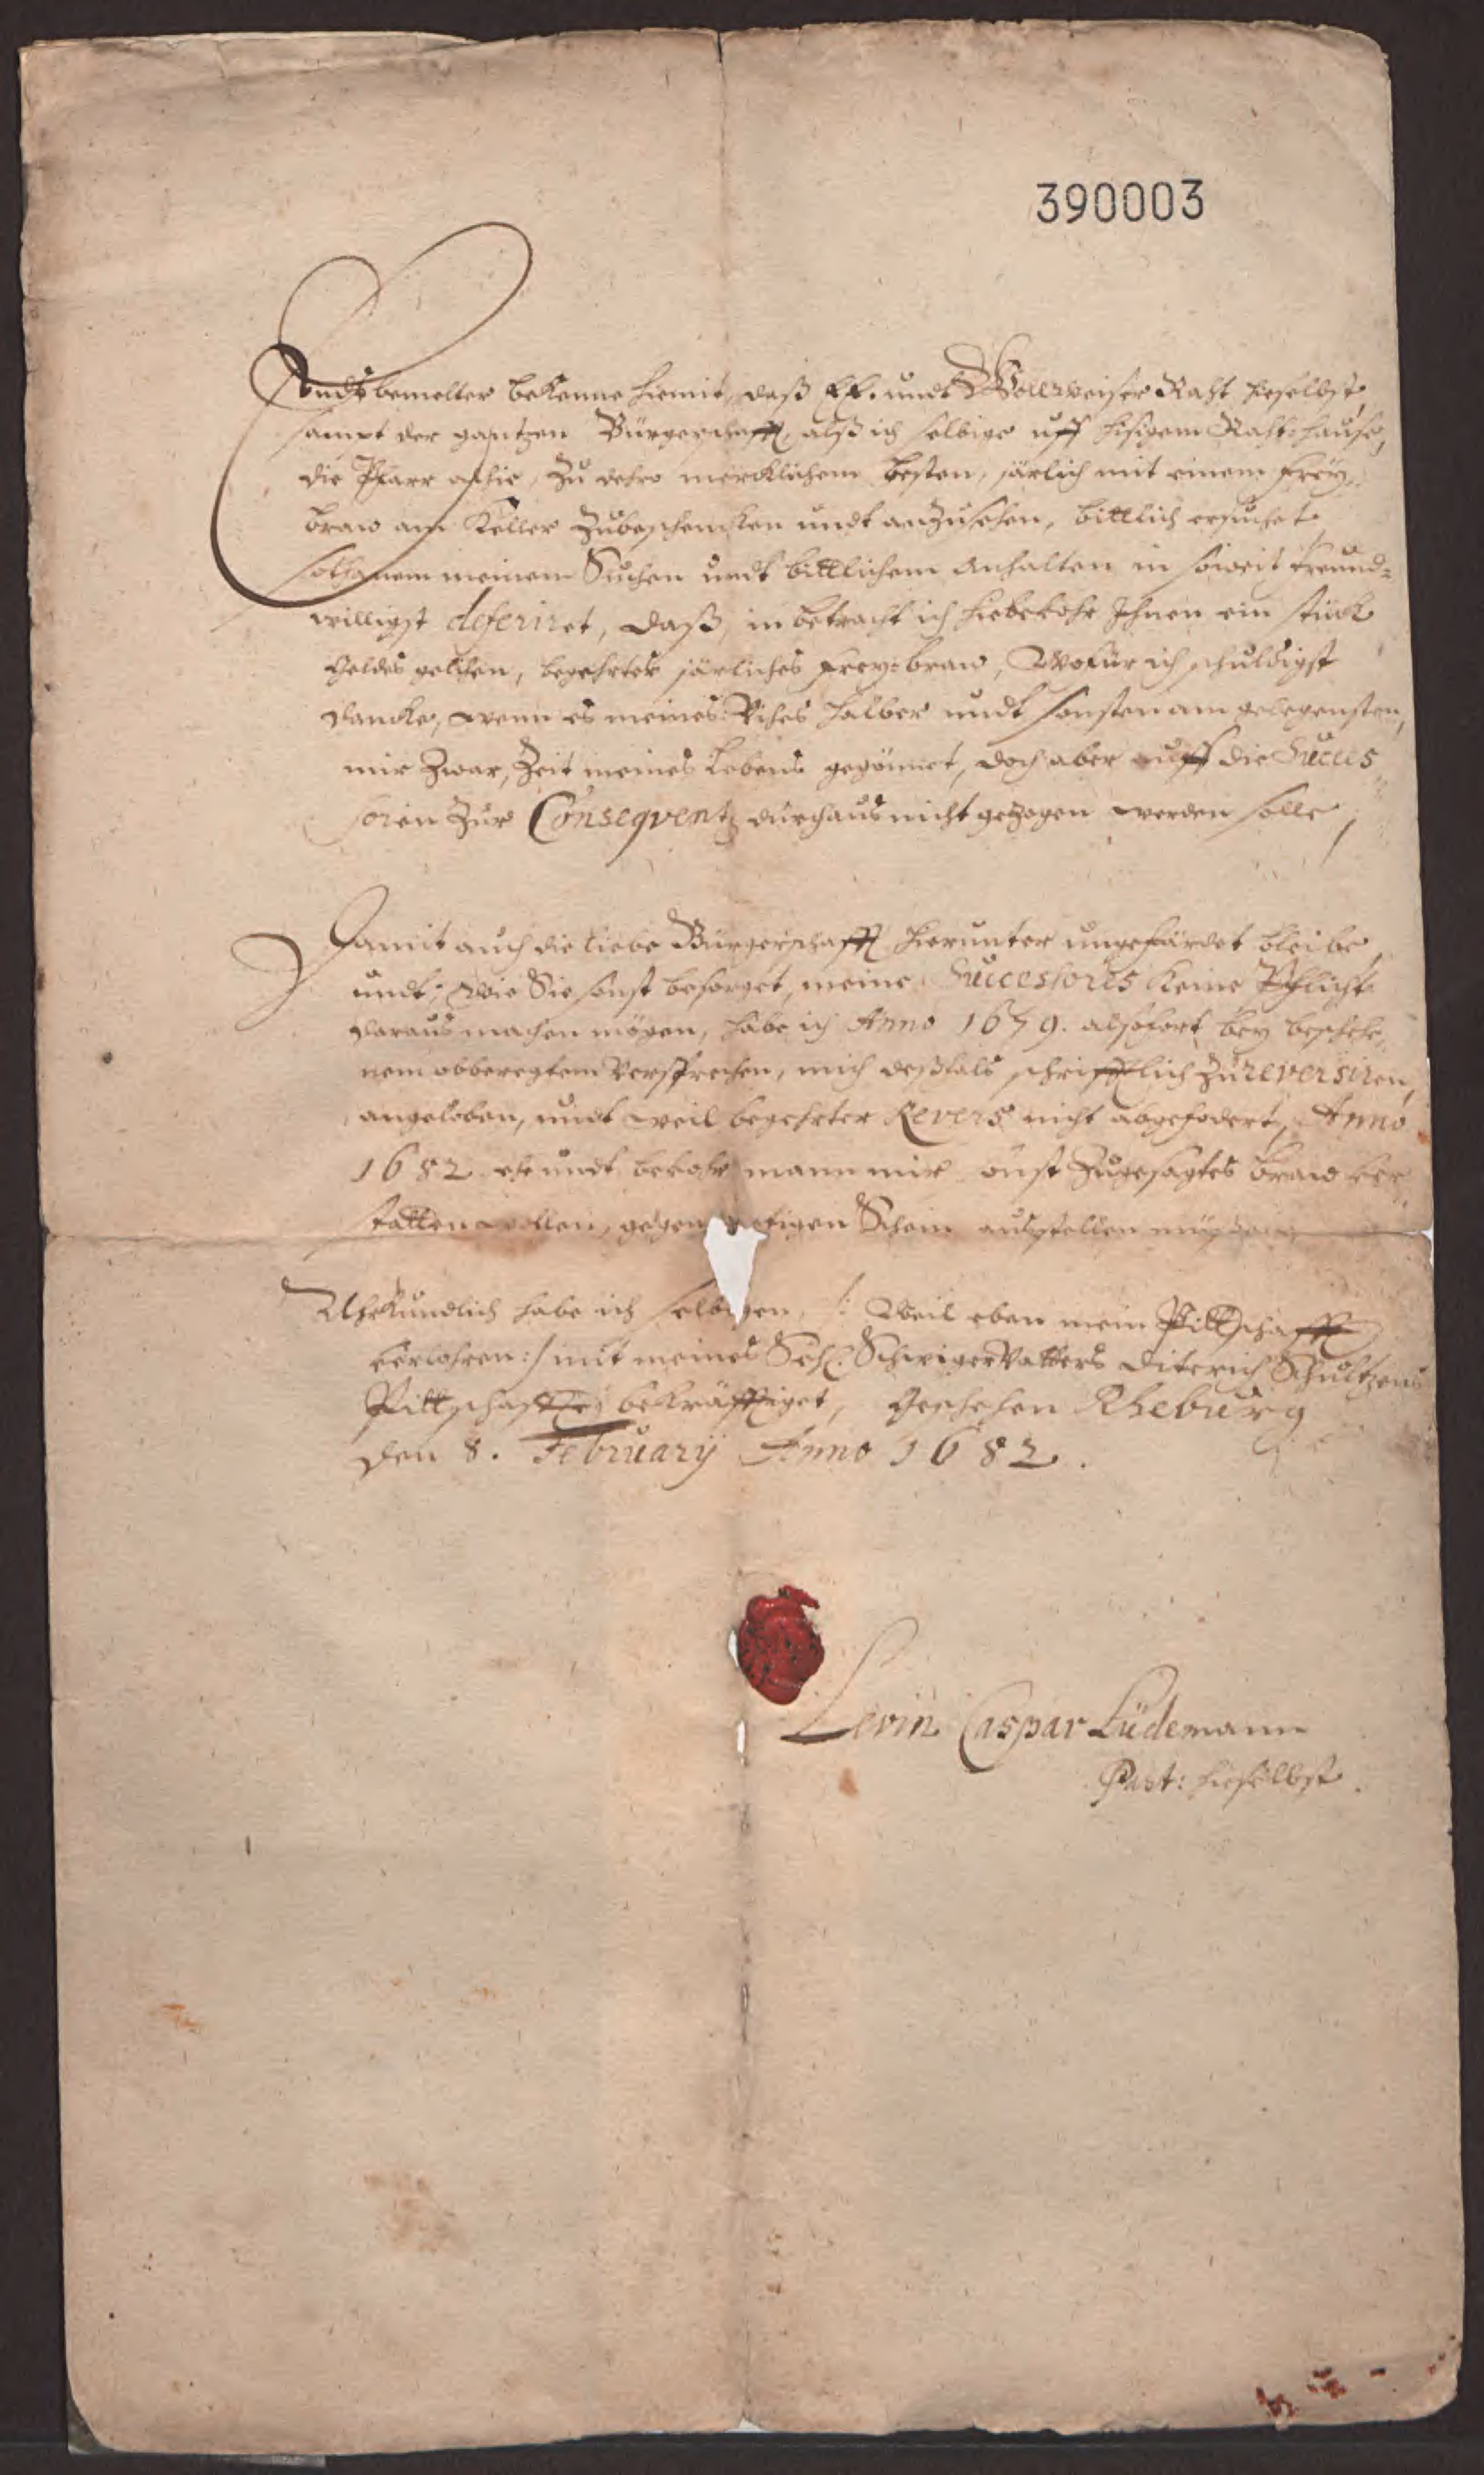 390003
Endsbemelter bekenne hiemit, daß EE. undt Wollweiser Raht hieselbst,
sampt der gantzen Bürgerschafft, alß ich selbige uff hisigem Rahthause,
die Pfarr alhie, zu dehro mercklichem besten, järlich mit einem frey
braw am Keller zubeschencken undt anzusehen, bittlich ersuchet
solchanem meinem Suchen undt bittlichem anhalten in soweit freund-
willigst deferiret, daß, in betracht ich hiebevohr Ihnen ein stück
Geldes gelihen, begehrtes järliches frey braw, Wofür ich schuldigst
dancke, wenn es meines Vihes halber undt sonsten am gelegensten,
mir zwar, Zeit meines Lebens gegönnet, doch aber auff die Succes
soren zur Conseqventz durchaus nicht gezogen werden solle,
Damit auch die liebe Bürgerschafft hierunter ungefärdet bleibe,
undt, wie Sie sonst besorget, meine Successores keine Pflicht
daraus machen mögen, habe ich Anno 1679. alsofort bey beschehe
nem obberegtem versprechen, mich deßfals schrifftlich zu reversiren,
angeloben, undt weil begehrter Revers nicht abgefodert, Anno
1682 ehe undt bevohr mann mir zugesagtes braw ver
statten wollen, Schein außstellen müssen
Uhrkundlich habe ich selbigen, /: Weil eben mein Pittschafft
verlohren :/ mit meines Sehl. Schwigervatters Diterich Schultzens
Pittschafft bekräfftiget, Geschehen Rheburg
den 8. February Anno 1682.
Levin Caspar Lüdemann
Past: hieselbst.